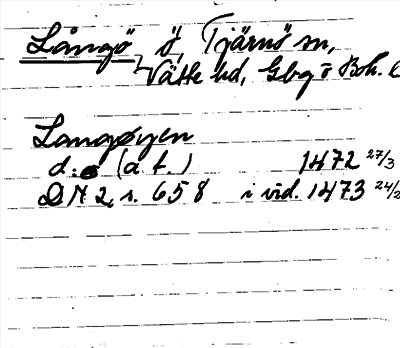 Långö, ö, Tjärnö sn,
Vätte hd, Gbg o Boh. l
Langøyen
d:o (a f.) 1472 27/3
DN 2, s. 658 i vid. 1473 24/2